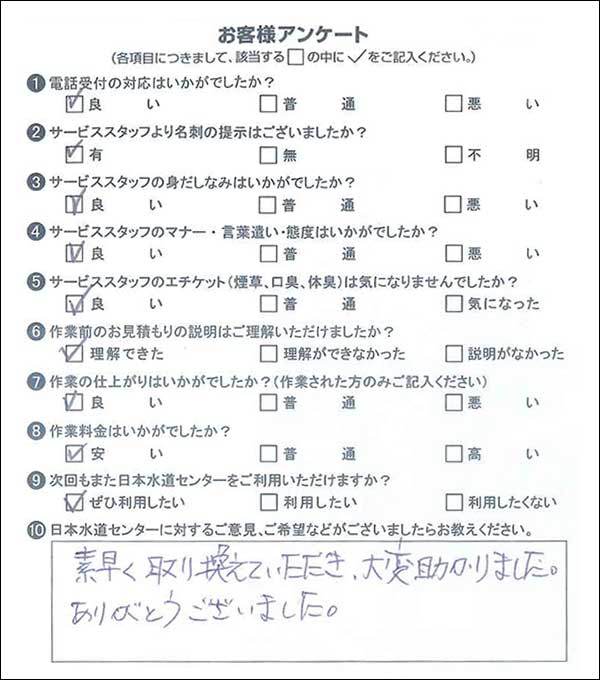 お客様アンケート
(各項目につきまして、該当する□の中に✓をご記入ください。)
❶電話受付の対応はいかがでしたか?
☑良い □普通 □悪い
❷サービススタッフより名刺の提示はございましたか?
☑有 □無 □不明
❸サービススタッフの身だしなみはいかがでしたか?
☑良い □普通 □悪い
❹サービススタッフのマナー・言葉遣い・態度はいかがでしたか?
☑良い □普通 □悪い
❺サービススタッフのエチケット(煙草、口臭、体臭)は気になりませんでしたか?
☑良い □普通 □気になった
❻作業前のお見積もりの説明はご理解いただけましたか?
☑理解できた □理解ができなかった □説明がなかった
❼作業の仕上がりはいかがでしたか?(作業された方のみご記入ください)
☑良い □普通 □悪い
❽作業料金はいかがでしたか?
☑安い □普通 □高い
❾次回もまた日本水道センターをご利用いただけますか?
☑ぜひ利用したい □利用したい □利用したくない
❿日本水道センターに対するご意見、ご希望などがございましたらお教えください。
素早く取り換えていただき、大変助かりました。
ありがとうございました。